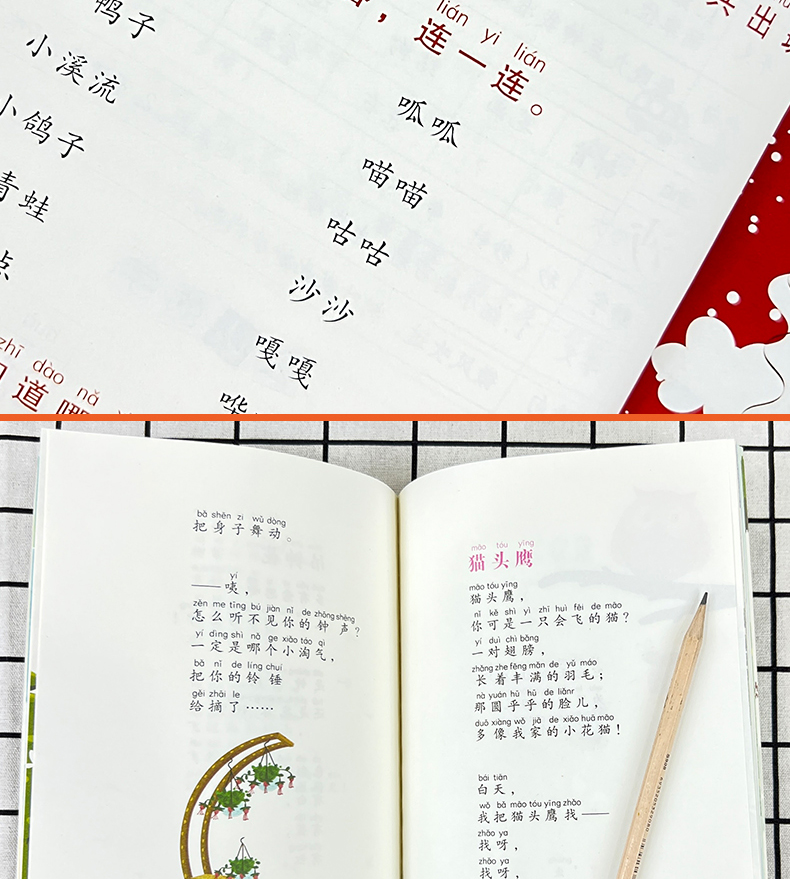 lián yi lián
连一连。
鸭子
小溪流
小鸽子
青蛙
呱呱
喵喵
咕咕
沙沙
嘎嘎
哗
zhī dào nǎ
道哪
出
bǎ shēn zi wǔ dòng
把身子舞动。
yí
——咦，
zěn me tīng bú jiàn nǐ de zhōng shēng
怎么听不见你的钟声？
yí dìng shì nǎ ge xiǎo táo qì
一定是哪个小淘气，
bǎ nǐ de líng chuí
把你的铃锤
gěi zhāi le
给摘了……
māo tóu yīng
猫头鹰
māo tóu yīng
猫头鹰，
nǐ kě shì yì zhī huì fēi de māo
你可是一只会飞的猫？
yí duì chì bǎng
一对翅膀，
zhǎng zhe fēng mǎn de yǔ máo
长着丰满的羽毛；
nà yuán hū hū de liǎnr
那圆乎乎的脸儿，
duō xiàng wǒ jiā de xiǎo huā māo
多像我家的小花猫！
bái tiān
白天，
wǒ bǎ māo tóu yīng zhǎo
我把猫头鹰找——
zhǎo ya
找呀，
zhǎo ya
找呀，